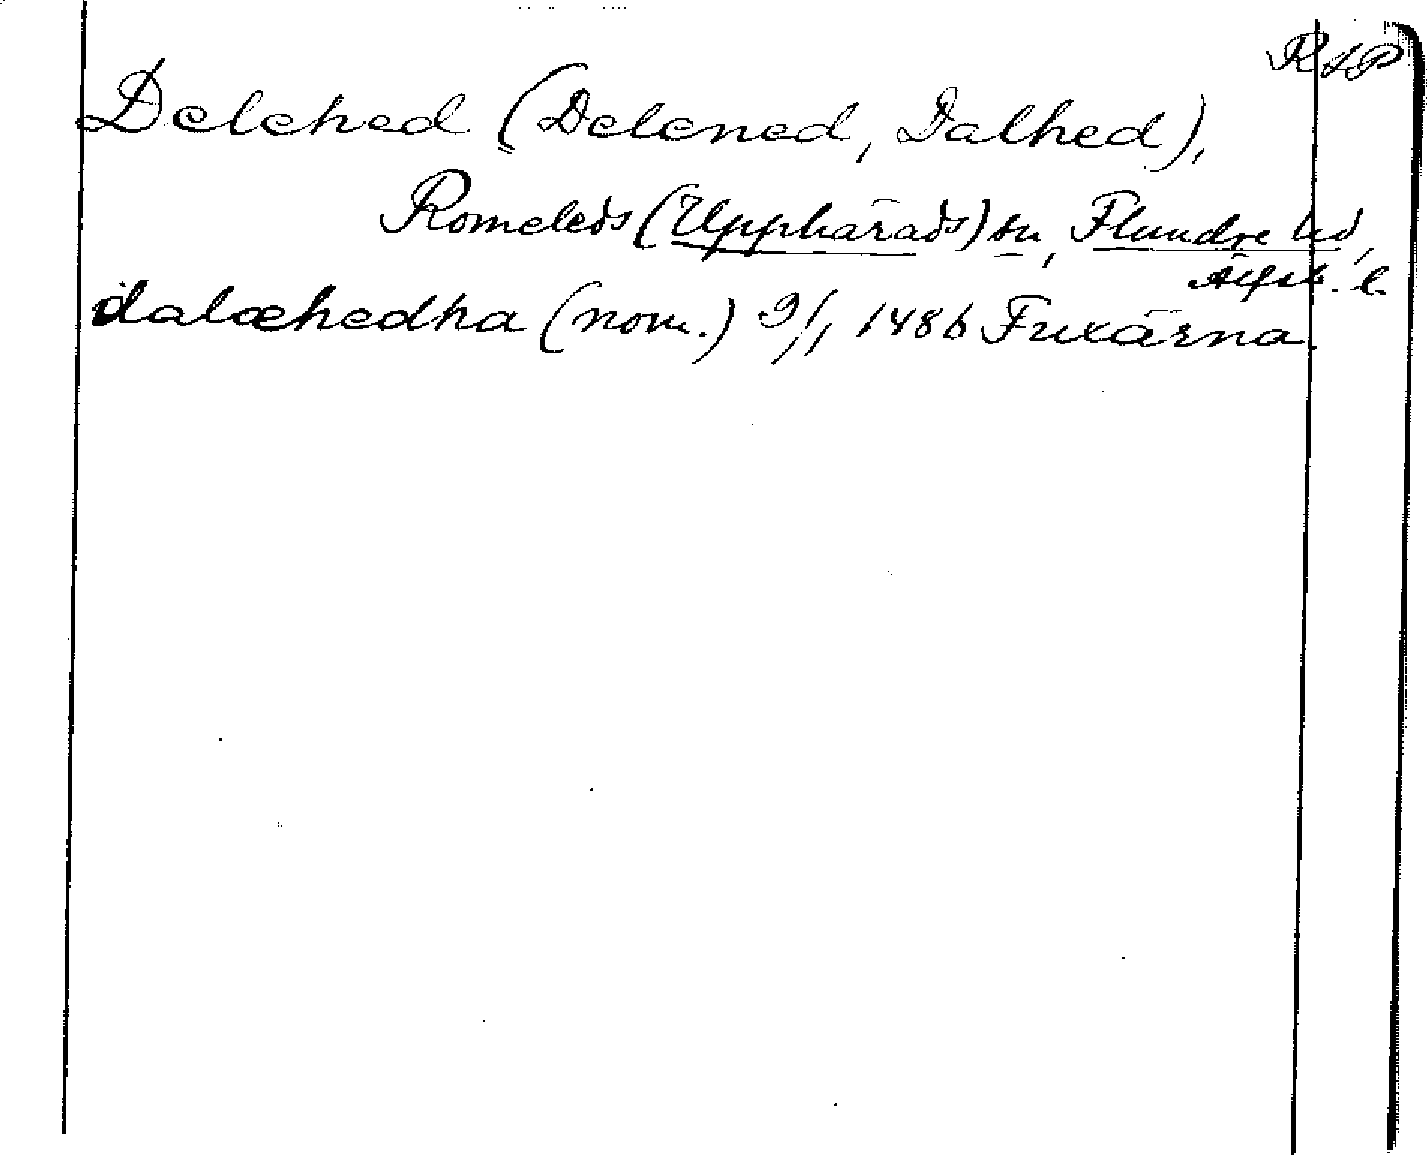 RAP
Delehed (Delened, Dalhed),
Romeleds (Upphärads) sn, Flundre hd,
Älfsb. l.
dalæhedha (nom.) 9/1 1486 Fuxärna.